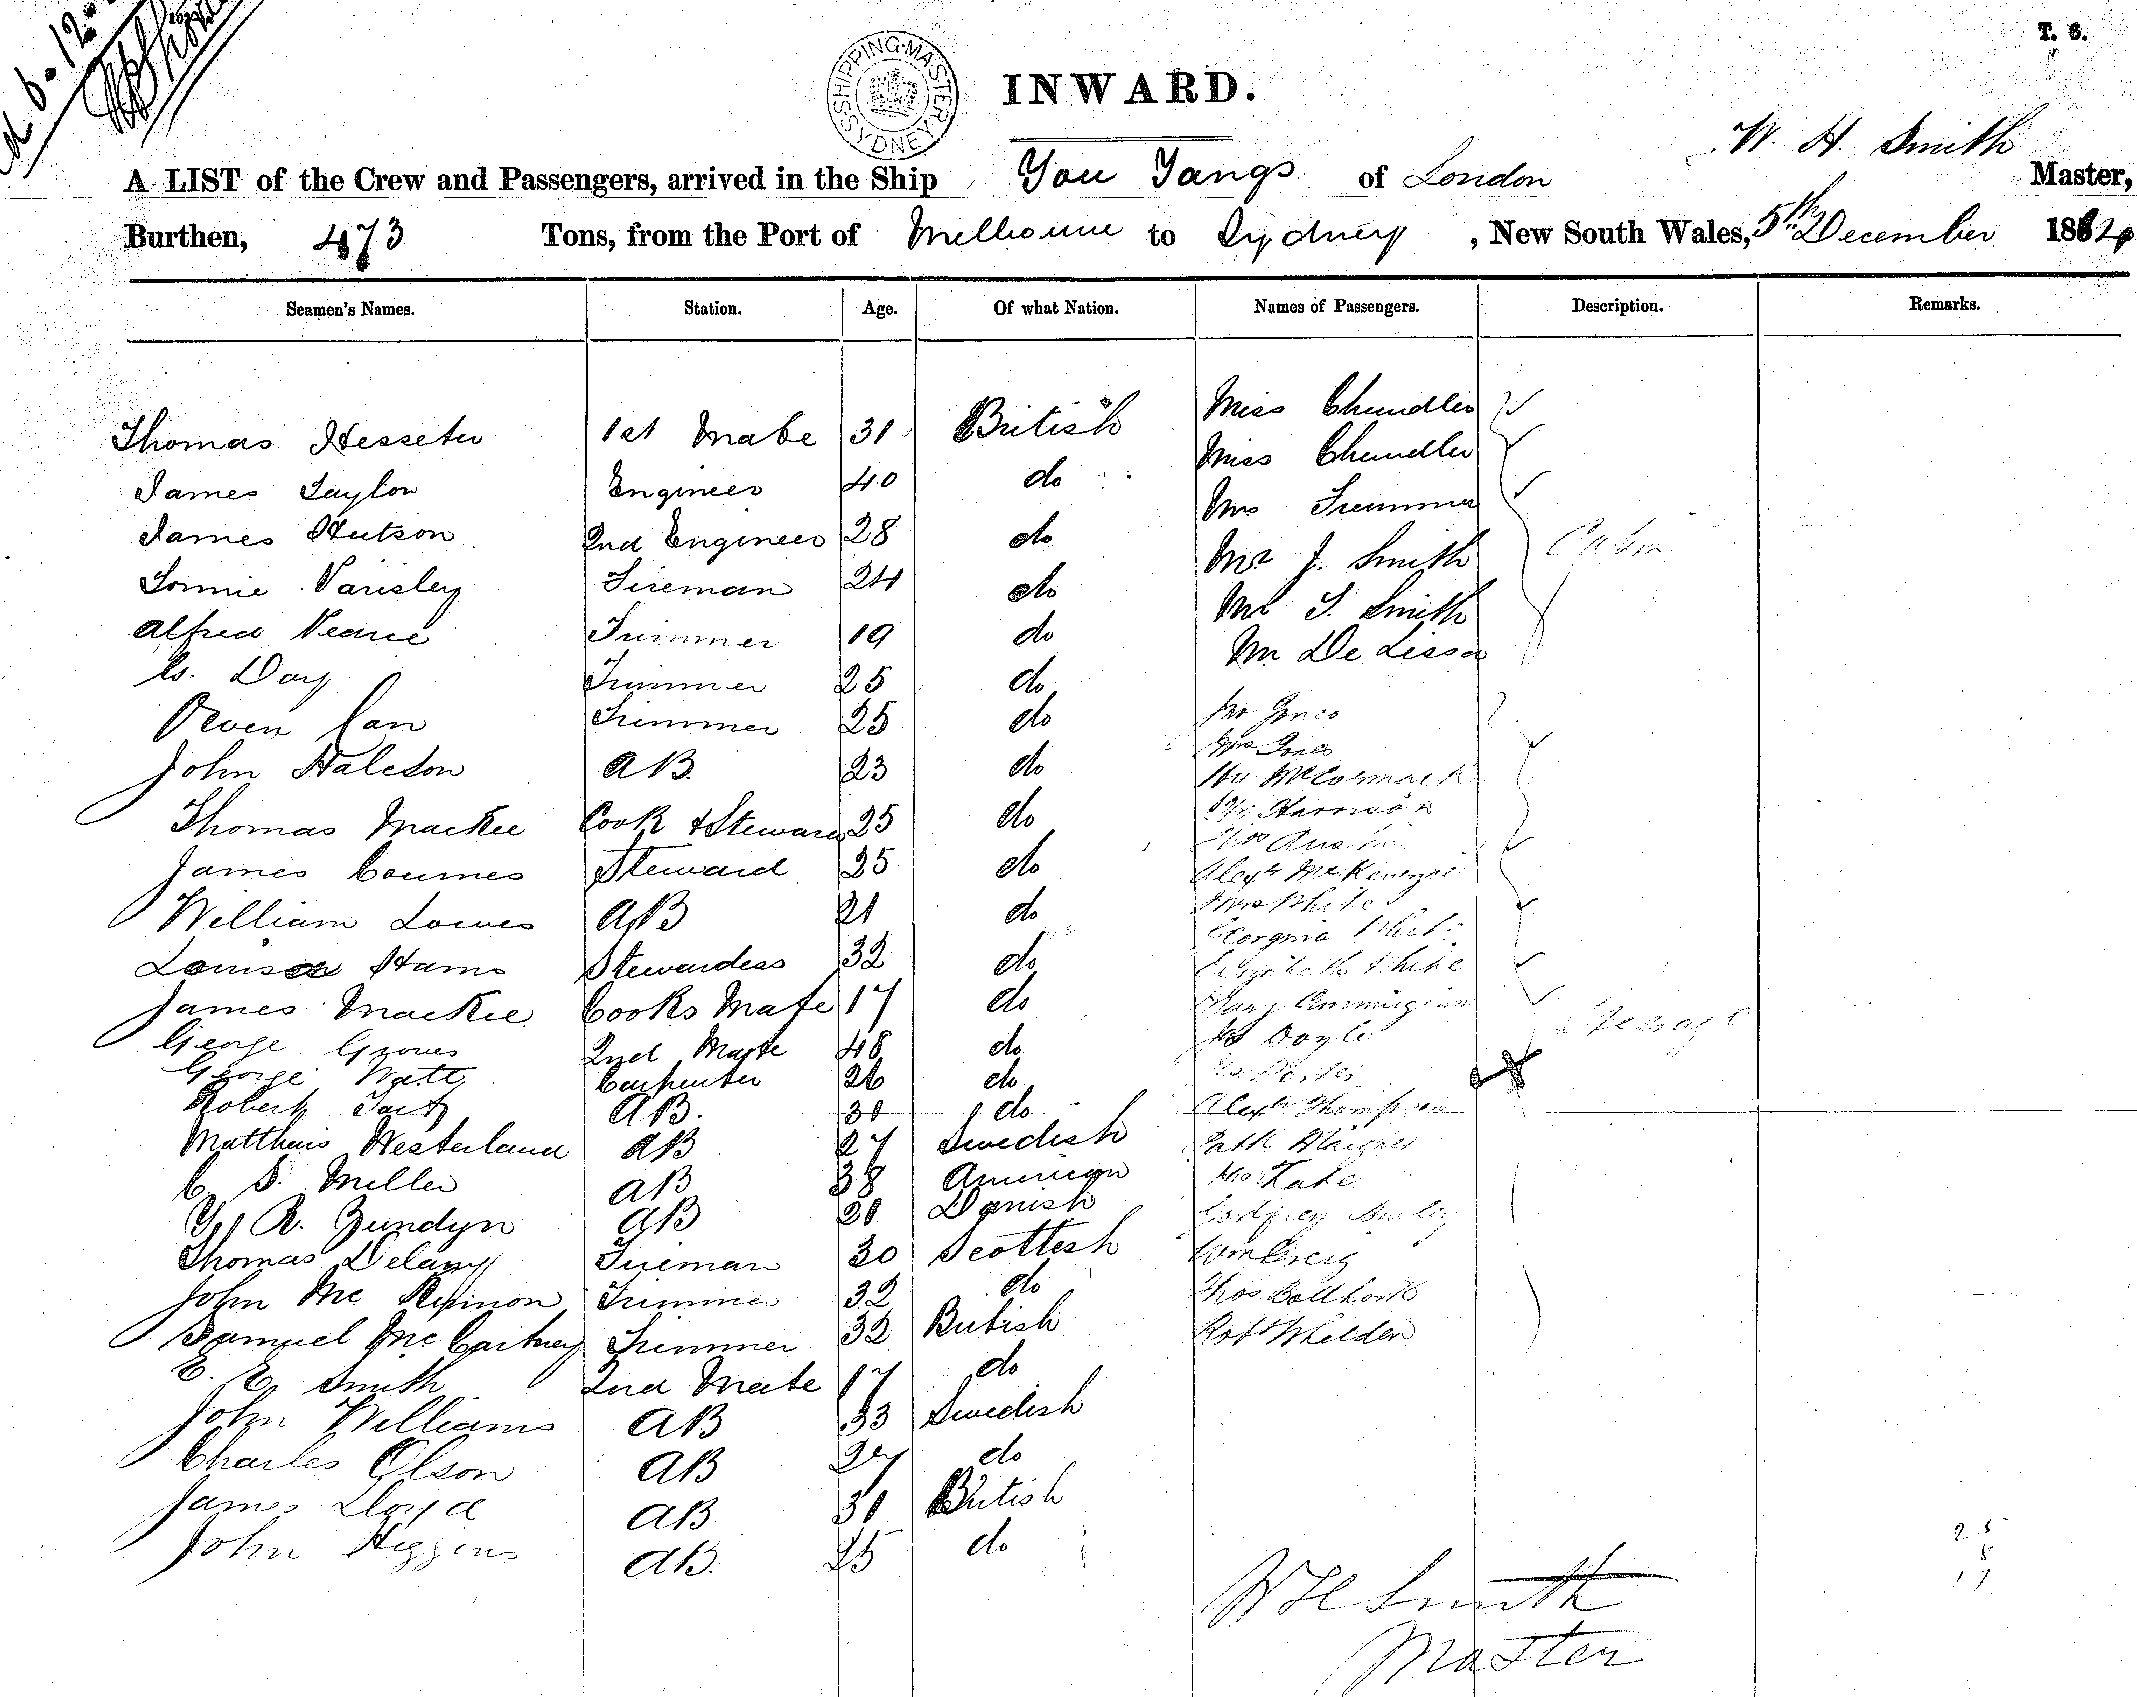 T. 6.
SHIPPING MASTER SYDNEY
INWARD.
W. H. Smith
A LIST of the Crew and Passengers, arrived in the Ship You Yangs of London Master,
Burthen, 473 Tons, from the Port of Melbourne to Sydney, New South Wales, 5th December 1882
Seamen's Names. Station. Age. Of what Nation. Names of Passengers. Description. Remarks.
Thomas Hesseter 1st Mate 31 British Miss Chandler
James Taylor Engineer 40 do Miss Chandler
James Hutson 2nd Engineer 28 do Mrs Trimmer
Fireman 24 do Mr J. Smith Cabin
Alfred Pearce Trimmer 19 do Mr T. Smith
C. Day Trimmer 25 do Mr De Lissa
Owen Carr Trimmer 25 do Mr Jones
John Halcson AB 23 do Mrs Jones
Hy McCormack
Thomas Mackee Cook & Steward 25 do Hy Harrison
James Coumes Steward 35 do Alexr McKenzie
William Lowes AB 21 do Mrs White
Georgina White
Louisa Hams Stewardess 32 do Elizabeth White
James Mackee Cooks Mate 17 do Mary Cunningham
George Groves 2nd Mate 48 do Doyle Steerage
George Watt Carpenter 26 do
Robert Tait AB. 30 do Alexr Thompson
Matthais Westerland AB 27 Swedish Patk
C. S. Miller AB 38 American Mrs Lake
R. Zundyn AB 30 Danish Godfrey
Thomas Delany Fireman 30 Scottish Wm Greig
John McKinnon Trimmer 32 do Thos
Samuel McCartney Trimmer 32 British Robt Whelden
E. E. Smith 2nd Mate 17 do
John Williams AB 33 Swedish
Charles Olson AB 27 do
James Lloyd AB 31 British
John Higgins AB. 25 do
W H Smith
Master